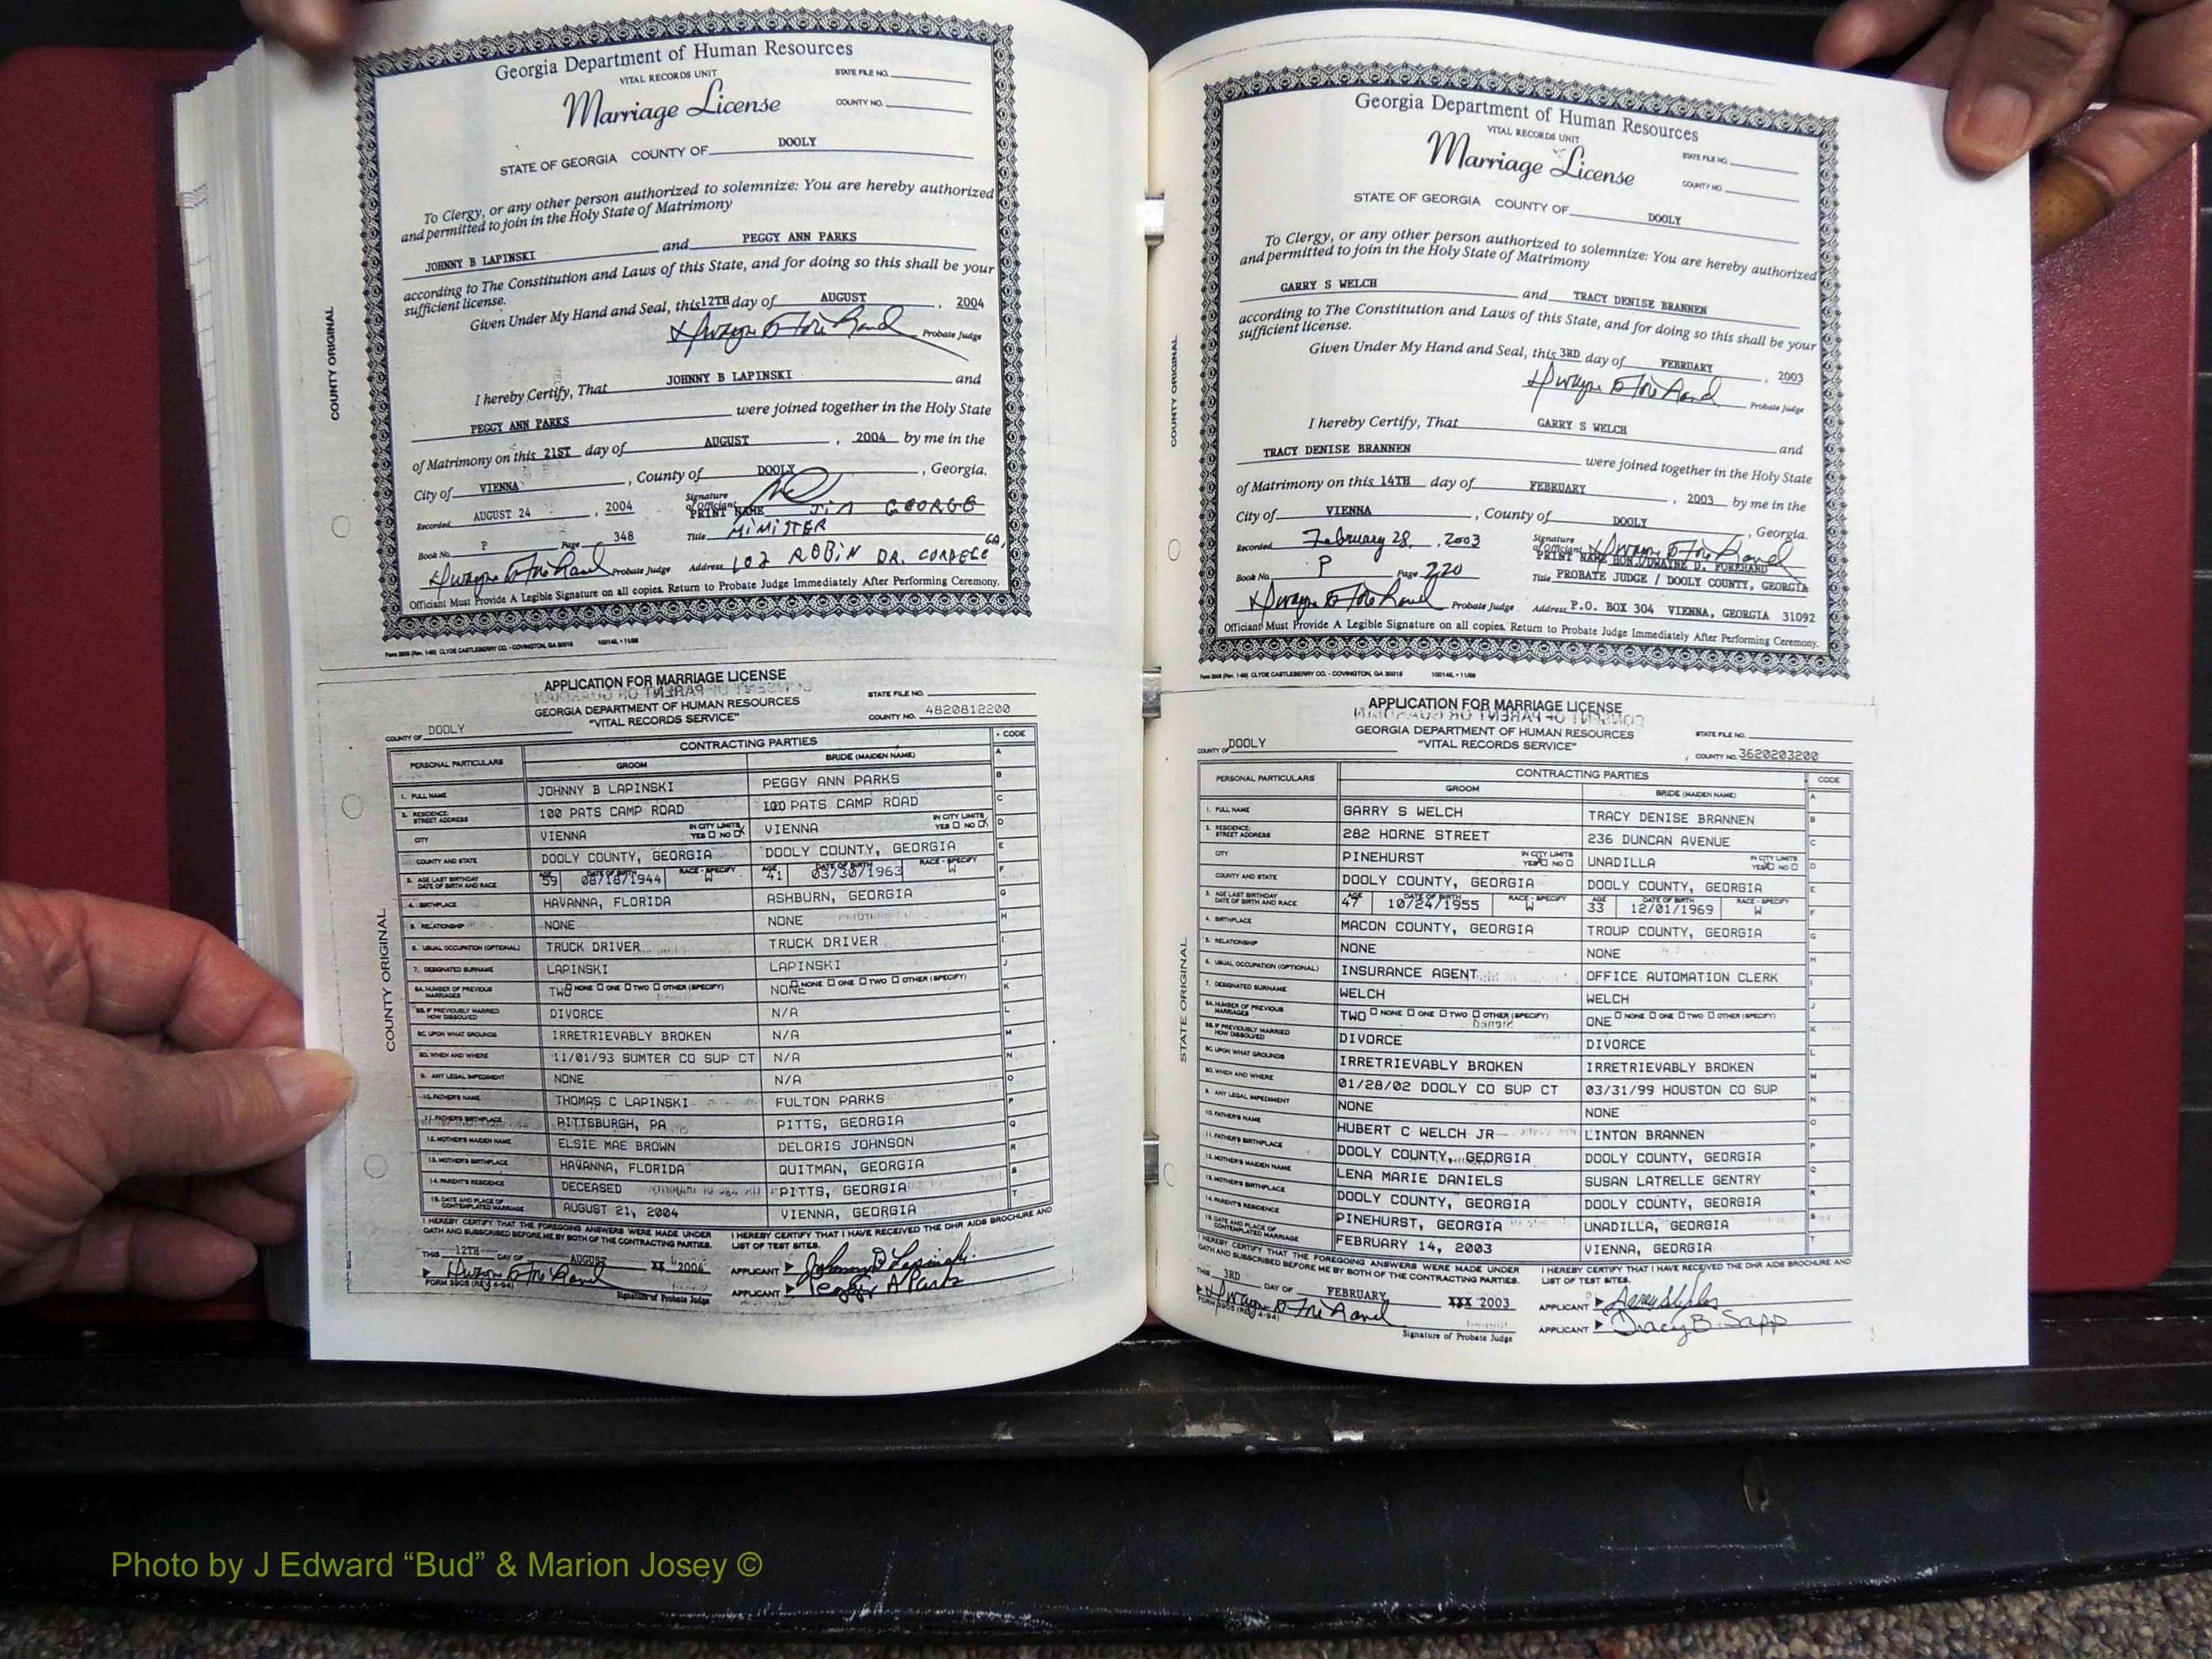 Georgia Department of Human Resources
VITAL RECORDS UNIT
STATE FILE NO.
Marriage License
COUNTY NO.
STATE OF GEORGIA COUNTY OF DOOLY
To Clergy, or any other person authorized to solemnize: You are hereby authorized
and permitted to join in the Holy State of Matrimony
JOHNNY B LAPINSKI and PEGGY ANN PARKS
according to The Constitution and Laws of this State, and for doing so this shall be your
sufficient license.
Given Under My Hand and Seal, this 12TH day of AUGUST, 2004
Probate Judge
I hereby Certify, That JOHNNY B LAPINSKI and
PEGGY ANN PARKS were joined together in the Holy State
of Matrimony on this 21ST day of AUGUST, 2004 by me in the
City of VIENNA, County of DOOLY, Georgia.
Recorded AUGUST 24, 2004 Signature of Officiant
PRINT NAME JIM GEORGE
Book No. P Page 348 Title MINISTER
Probate Judge Address 102 ROBIN DR. CORDELE GA,
Officiant Must Provide A Legible Signature on all copies. Return to Probate Judge Immediately After Performing Ceremony.
Form 3908 (Rev. 1-99) CLYDE CASTLEBERRY CO. - COVINGTON, GA 30015
COUNTY ORIGINAL
APPLICATION FOR MARRIAGE LICENSE
GEORGIA DEPARTMENT OF HUMAN RESOURCES
"VITAL RECORDS SERVICE"
STATE FILE NO.
COUNTY OF DOOLY COUNTY NO. 4820812200
PERSONAL PARTICULARS CONTRACTING PARTIES CODE
GROOM BRIDE (MAIDEN NAME) A
1. FULL NAME JOHNNY B LAPINSKI PEGGY ANN PARKS B
2. RESIDENCE: STREET ADDRESS 100 PATS CAMP ROAD 100 PATS CAMP ROAD C
CITY VIENNA IN CITY LIMITS YES NO X VIENNA IN CITY LIMITS YES NO X D
COUNTY AND STATE DOOLY COUNTY, GEORGIA DOOLY COUNTY, GEORGIA E
3. AGE LAST BIRTHDAY DATE OF BIRTH AND RACE AGE 59 DATE OF BIRTH 08/18/1944 RACE - SPECIFY W AGE 41 DATE OF BIRTH 03/30/1963 RACE - SPECIFY W F
4. BIRTHPLACE HAVANNA, FLORIDA ASHBURN, GEORGIA G
5. RELATIONSHIP NONE NONE H
6. USUAL OCCUPATION (OPTIONAL) TRUCK DRIVER TRUCK DRIVER I
7. DESIGNATED SURNAME LAPINSKI LAPINSKI J
8A. NUMBER OF PREVIOUS MARRIAGES TWO NONE ONE TWO OTHER (SPECIFY) NONE NONE ONE TWO OTHER (SPECIFY) K
8B. IF PREVIOUSLY MARRIED HOW DISSOLVED DIVORCE N/A L
8C. UPON WHAT GROUNDS IRRETRIEVABLY BROKEN N/A M
8D. WHEN AND WHERE 11/01/93 SUMTER CO SUP CT N/A N
9. ANY LEGAL IMPEDIMENT NONE N/A O
10. FATHER'S NAME THOMAS C LAPINSKI FULTON PARKS P
11. FATHER'S BIRTHPLACE PITTSBURGH, PA PITTS, GEORGIA Q
12. MOTHER'S MAIDEN NAME ELSIE MAE BROWN DELORIS JOHNSON R
13. MOTHER'S BIRTHPLACE HAVANNA, FLORIDA QUITMAN, GEORGIA S
14. PARENT'S RESIDENCE DECEASED PITTS, GEORGIA T
15. DATE AND PLACE OF CONTEMPLATED MARRIAGE AUGUST 21, 2004 VIENNA, GEORGIA
I HEREBY CERTIFY THAT THE FOREGOING ANSWERS WERE MADE UNDER
OATH AND SUBSCRIBED BEFORE ME BY BOTH OF THE CONTRACTING PARTIES.
I HEREBY CERTIFY THAT I HAVE RECEIVED THE DHR AIDS BROCHURE AND
LIST OF TEST SITES.
THIS 12TH DAY OF AUGUST XX 2004
APPLICANT Johnny B Lapinski
APPLICANT Peggy A Parks
FORM 3905 (REV. 4-94) Signature of Probate Judge
COUNTY ORIGINAL
Georgia Department of Human Resources
VITAL RECORDS UNIT
STATE FILE NO.
Marriage License
COUNTY NO.
STATE OF GEORGIA COUNTY OF DOOLY
To Clergy, or any other person authorized to solemnize: You are hereby authorized
and permitted to join in the Holy State of Matrimony
GARRY S WELCH and TRACY DENISE BRANNEN
according to The Constitution and Laws of this State, and for doing so this shall be your
sufficient license.
Given Under My Hand and Seal, this 3RD day of FEBRUARY, 2003
Probate Judge
I hereby Certify, That GARRY S WELCH and
TRACY DENISE BRANNEN were joined together in the Holy State
of Matrimony on this 14TH day of FEBRUARY, 2003 by me in the
City of VIENNA, County of DOOLY, Georgia.
Recorded February 28, 2003 Signature of Officiant
PRINT NAME HON. DWAYNE D. FOREHAND
Book No. P Page 220 Title PROBATE JUDGE / DOOLY COUNTY, GEORGIA
Probate Judge Address P.O. BOX 304 VIENNA, GEORGIA 31092
Officiant Must Provide A Legible Signature on all copies. Return to Probate Judge Immediately After Performing Ceremony.
Form 3908 (Rev. 1-99) CLYDE CASTLEBERRY CO. - COVINGTON, GA 30015
COUNTY ORIGINAL
APPLICATION FOR MARRIAGE LICENSE
GEORGIA DEPARTMENT OF HUMAN RESOURCES
"VITAL RECORDS SERVICE"
STATE FILE NO.
COUNTY OF DOOLY COUNTY NO. 3620203200
PERSONAL PARTICULARS CONTRACTING PARTIES CODE
GROOM BRIDE (MAIDEN NAME) A
1. FULL NAME GARRY S WELCH TRACY DENISE BRANNEN B
2. RESIDENCE: STREET ADDRESS 282 HORNE STREET 236 DUNCAN AVENUE C
CITY PINEHURST IN CITY LIMITS YES X NO UNADILLA IN CITY LIMITS YES X NO D
COUNTY AND STATE DOOLY COUNTY, GEORGIA DOOLY COUNTY, GEORGIA E
3. AGE LAST BIRTHDAY DATE OF BIRTH AND RACE AGE 47 DATE OF BIRTH 10/24/1955 RACE - SPECIFY W AGE 33 DATE OF BIRTH 12/01/1969 RACE - SPECIFY W F
4. BIRTHPLACE MACON COUNTY, GEORGIA TROUP COUNTY, GEORGIA G
5. RELATIONSHIP NONE NONE H
6. USUAL OCCUPATION (OPTIONAL) INSURANCE AGENT OFFICE AUTOMATION CLERK I
7. DESIGNATED SURNAME WELCH WELCH J
8A. NUMBER OF PREVIOUS MARRIAGES TWO NONE ONE TWO OTHER (SPECIFY) ONE NONE ONE TWO OTHER (SPECIFY) K
8B. IF PREVIOUSLY MARRIED HOW DISSOLVED DIVORCE DIVORCE L
8C. UPON WHAT GROUNDS IRRETRIEVABLY BROKEN IRRETRIEVABLY BROKEN M
8D. WHEN AND WHERE 01/28/02 DOOLY CO SUP CT 03/31/99 HOUSTON CO SUP N
9. ANY LEGAL IMPEDIMENT NONE NONE O
10. FATHER'S NAME HUBERT C WELCH JR LINTON BRANNEN P
11. FATHER'S BIRTHPLACE DOOLY COUNTY, GEORGIA DOOLY COUNTY, GEORGIA Q
12. MOTHER'S MAIDEN NAME LENA MARIE DANIELS SUSAN LATRELLE GENTRY R
13. MOTHER'S BIRTHPLACE DOOLY COUNTY, GEORGIA DOOLY COUNTY, GEORGIA S
14. PARENT'S RESIDENCE PINEHURST, GEORGIA UNADILLA, GEORGIA T
15. DATE AND PLACE OF CONTEMPLATED MARRIAGE FEBRUARY 14, 2003 VIENNA, GEORGIA
I HEREBY CERTIFY THAT THE FOREGOING ANSWERS WERE MADE UNDER
OATH AND SUBSCRIBED BEFORE ME BY BOTH OF THE CONTRACTING PARTIES.
I HEREBY CERTIFY THAT I HAVE RECEIVED THE DHR AIDS BROCHURE AND
LIST OF TEST SITES.
THIS 3RD DAY OF FEBRUARY XXX 2003
APPLICANT
APPLICANT Tracy B. Sapp
FORM 3905 (REV. 4-94) Signature of Probate Judge
STATE ORIGINAL
Photo by J Edward “Bud” & Marion Josey ©